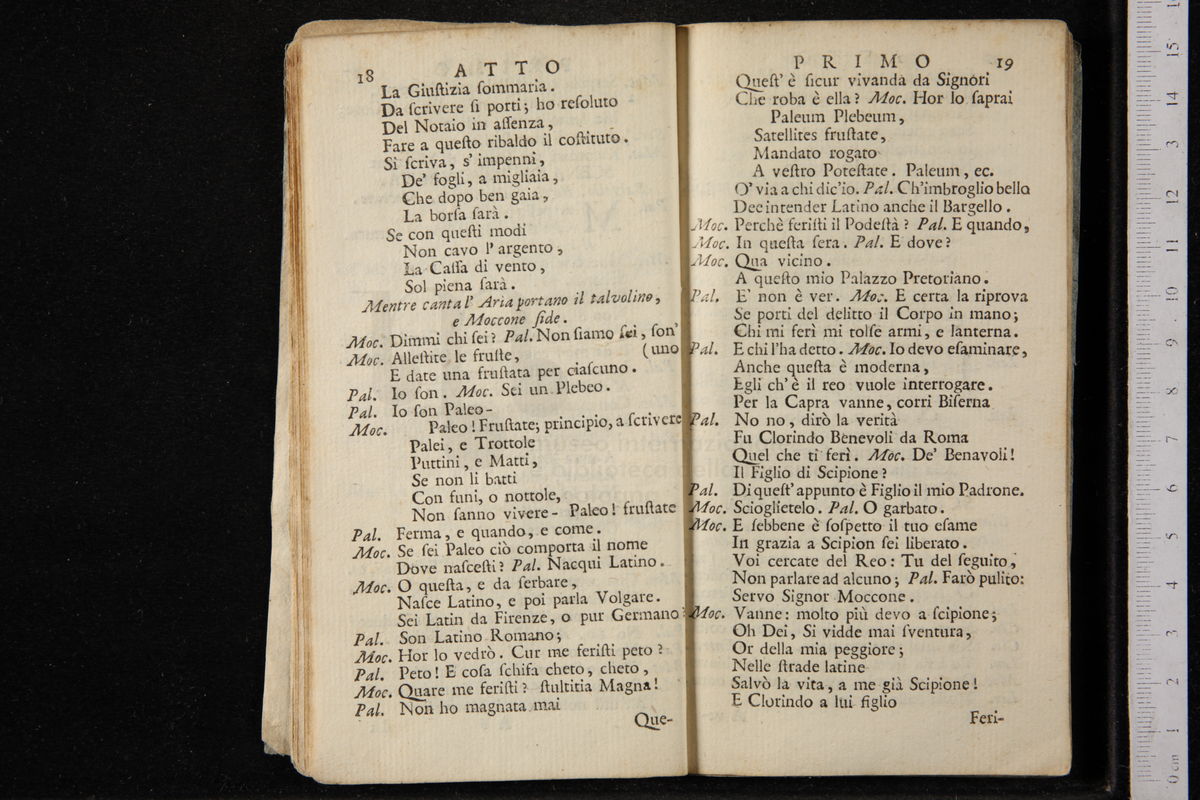 18 ATTO
La Giuſtizia ſommaria.
Da ſcrivere ſi porti; ho reſoluto
Del Notaio in aſſenza,
Fare a queſto ribaldo il coſtituto.
Si ſcriva, s' impenni,
De' fogli, a migliaia,
Che dopo ben gaia,
La borſa ſarà.
Se con queſti modi
Non cavo l' argento,
La Caſſa di vento,
Sol piena ſarà.
Mentre canta l' Aria portano il talvolino,
e Moccone ſide.
Moc. Dimmi chi ſei? Pal. Non ſiamo ſei, ſon'
Moc. Alleſtite le fruſte, (uno
E date una fruſtata per ciaſcuno.
Pal. Io ſon. Moc. Sei un Plebeo.
Pal. Io ſon Paleo-
Moc. Paleo! Fruſtate; principio, a ſcrivere
Palei, e Trottole
Puttini, e Matti,
Se non li batti
Con funi, o nottole,
Non ſanno vivere- Paleo! fruſtate
Pal. Ferma, e quando, e come.
Moc. Se ſei Paleo ciò comporta il nome
Dove naſceſti? Pal. Nacqui Latino.
Moc. O queſta, e da ſerbare,
Naſce Latino, e poi parla Volgare.
Sei Latin da Firenze, o pur Germano?
Pal. Son Latino Romano;
Moc. Hor lo vedrò. Cur me feriſti peto?
Pal. Peto! E coſa ſchifa cheto, cheto,
Moc. Quare me feriſti? ſtultitia Magna!
Pal. Non ho magnata mai
Que-
PRIMO 19
Queſt' è ſicur vivanda da Signori
Che roba è ella? Moc. Hor lo ſaprai
Paleum Plebeum,
Satellites fruſtate,
Mandato rogato
A veſtro Poteſtate. Paleum, ec.
O' via a chi dic'io. Pal. Ch'imbroglio bello
Dee intender Latino anche il Bargello.
Moc. Perchè feriſti il Podeſtà? Pal. E quando,
Moc. In queſta ſera. Pal. E dove?
Moc. Qua vicino.
A queſto mio Palazzo Pretoriano.
Pal. E' non è ver. Moc. E certa la riprova
Se porti del delitto il Corpo in mano;
Chi mi ferì mi tolſe armi, e lanterna.
Pal. E chi l'ha detto. Moc. Io devo eſaminare,
Anche queſta è moderna,
Egli ch' è il reo vuole interrogare.
Per la Capra vanne, corri Biſerna
Pal. No no, dirò la verità
Fu Clorindo Benevoli da Roma
Quel che ti ferì. Moc. De' Benavoli!
Il Figlio di Scipione?
Pal. Di queſt' appunto è Figlio il mio Padrone.
Moc. Scioglietelo. Pal. O garbato.
Moc. E ſebbene è ſoſpetto il tuo eſame
In grazia a Scipion ſei liberato.
Voi cercate del Reo: Tu del ſeguito,
Non parlare ad alcuno; Pal. Farò pulito:
Servo Signor Moccone.
Moc. Vanne: molto più devo a ſcipione;
Oh Dei, Si vidde mai ſventura,
Or della mia peggiore;
Nelle ſtrade latine
Salvò la vita, a me già Scipione!
E Clorindo a lui figlio
Feri-